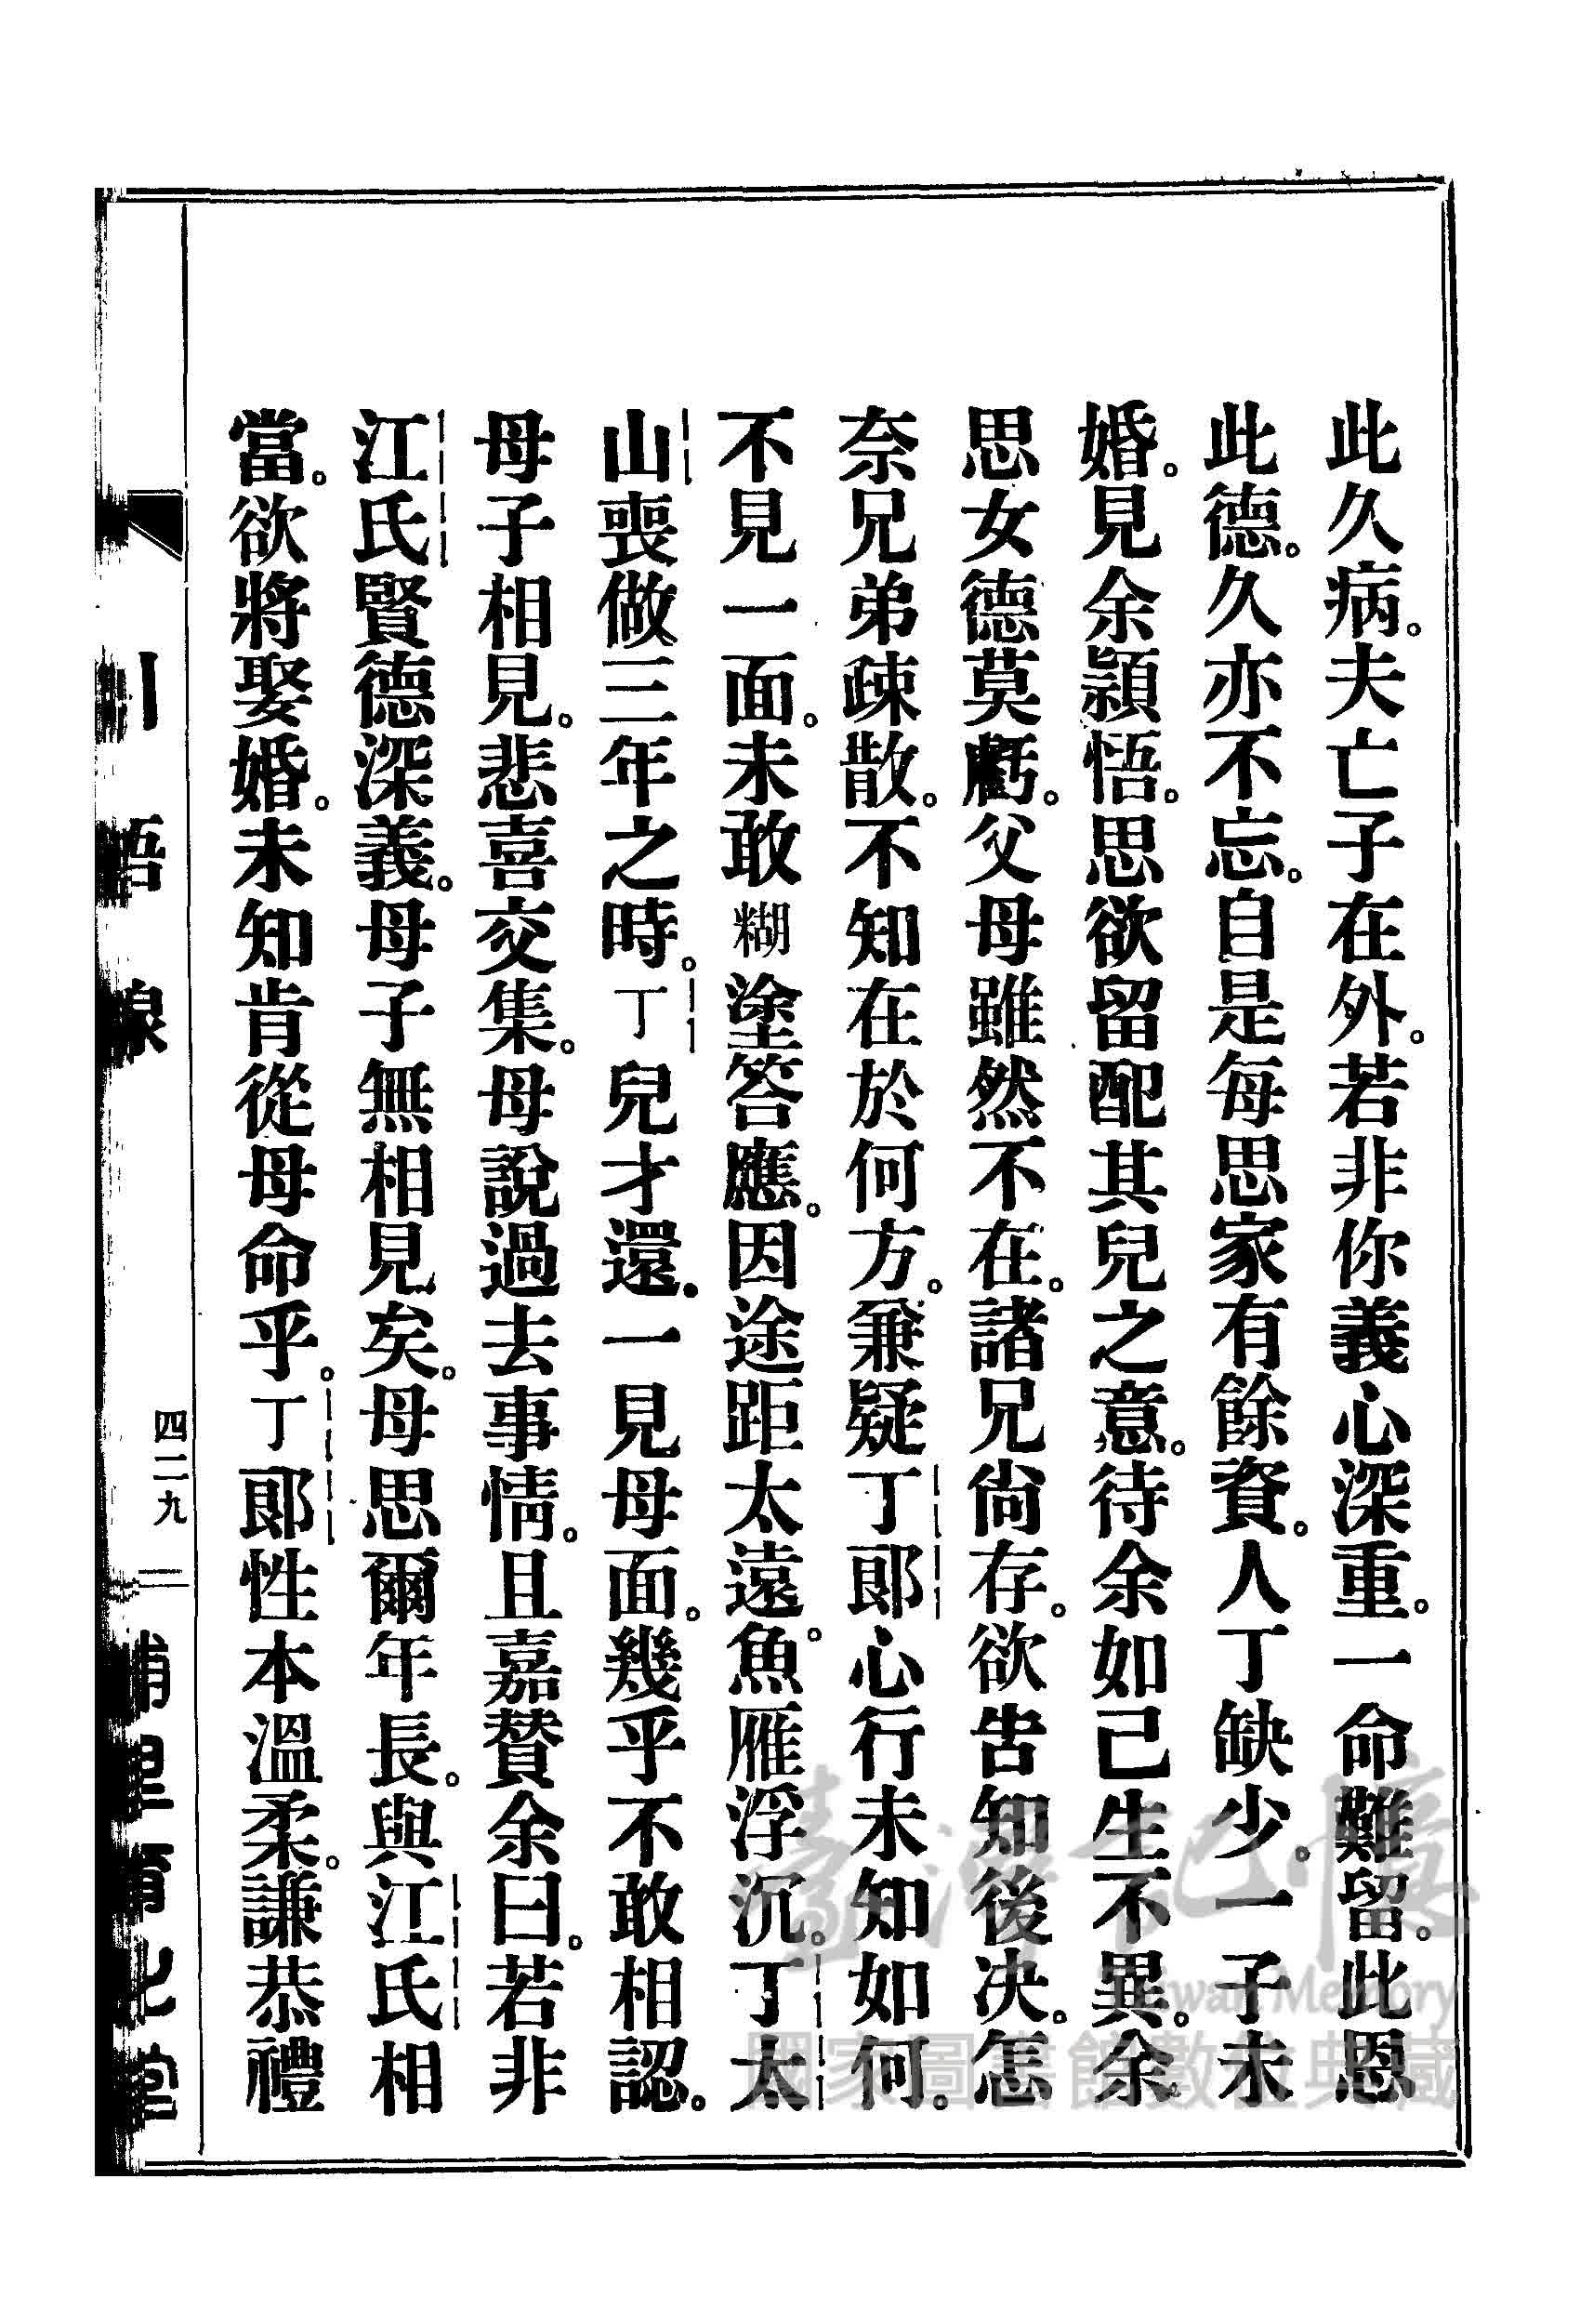 此久病。夫亡子在外。若非你義心深重。一命難留。此恩
此德。久亦不忘。自是每思家有餘資。人丁缺少。一子未
婚。見余穎悟。思欲留配其兒之意。待余如己生不異。余
思女德莫虧。父母雖然不在。諸兄尙存。欲告知後决。怎
奈兄弟疎散。不知在於何方。兼疑丁郞心行未知如何。
不見一面。未敢糊塗答應。因途距太遠。魚雁浮沉。丁太
山喪做三年之時。丁兒才還。一見母面。幾乎不敢相認。
母子相見。悲喜交集。母說過去事情。且嘉賛余曰。若非
江氏賢德深義。母子無相見矣。母思爾年長。與江氏相
當。欲將娶婚。未知肯從母命乎。丁郞性本溫柔。謙恭禮
四二九
臺灣記憶
Taiwan Memory
國家圖書館數位典藏